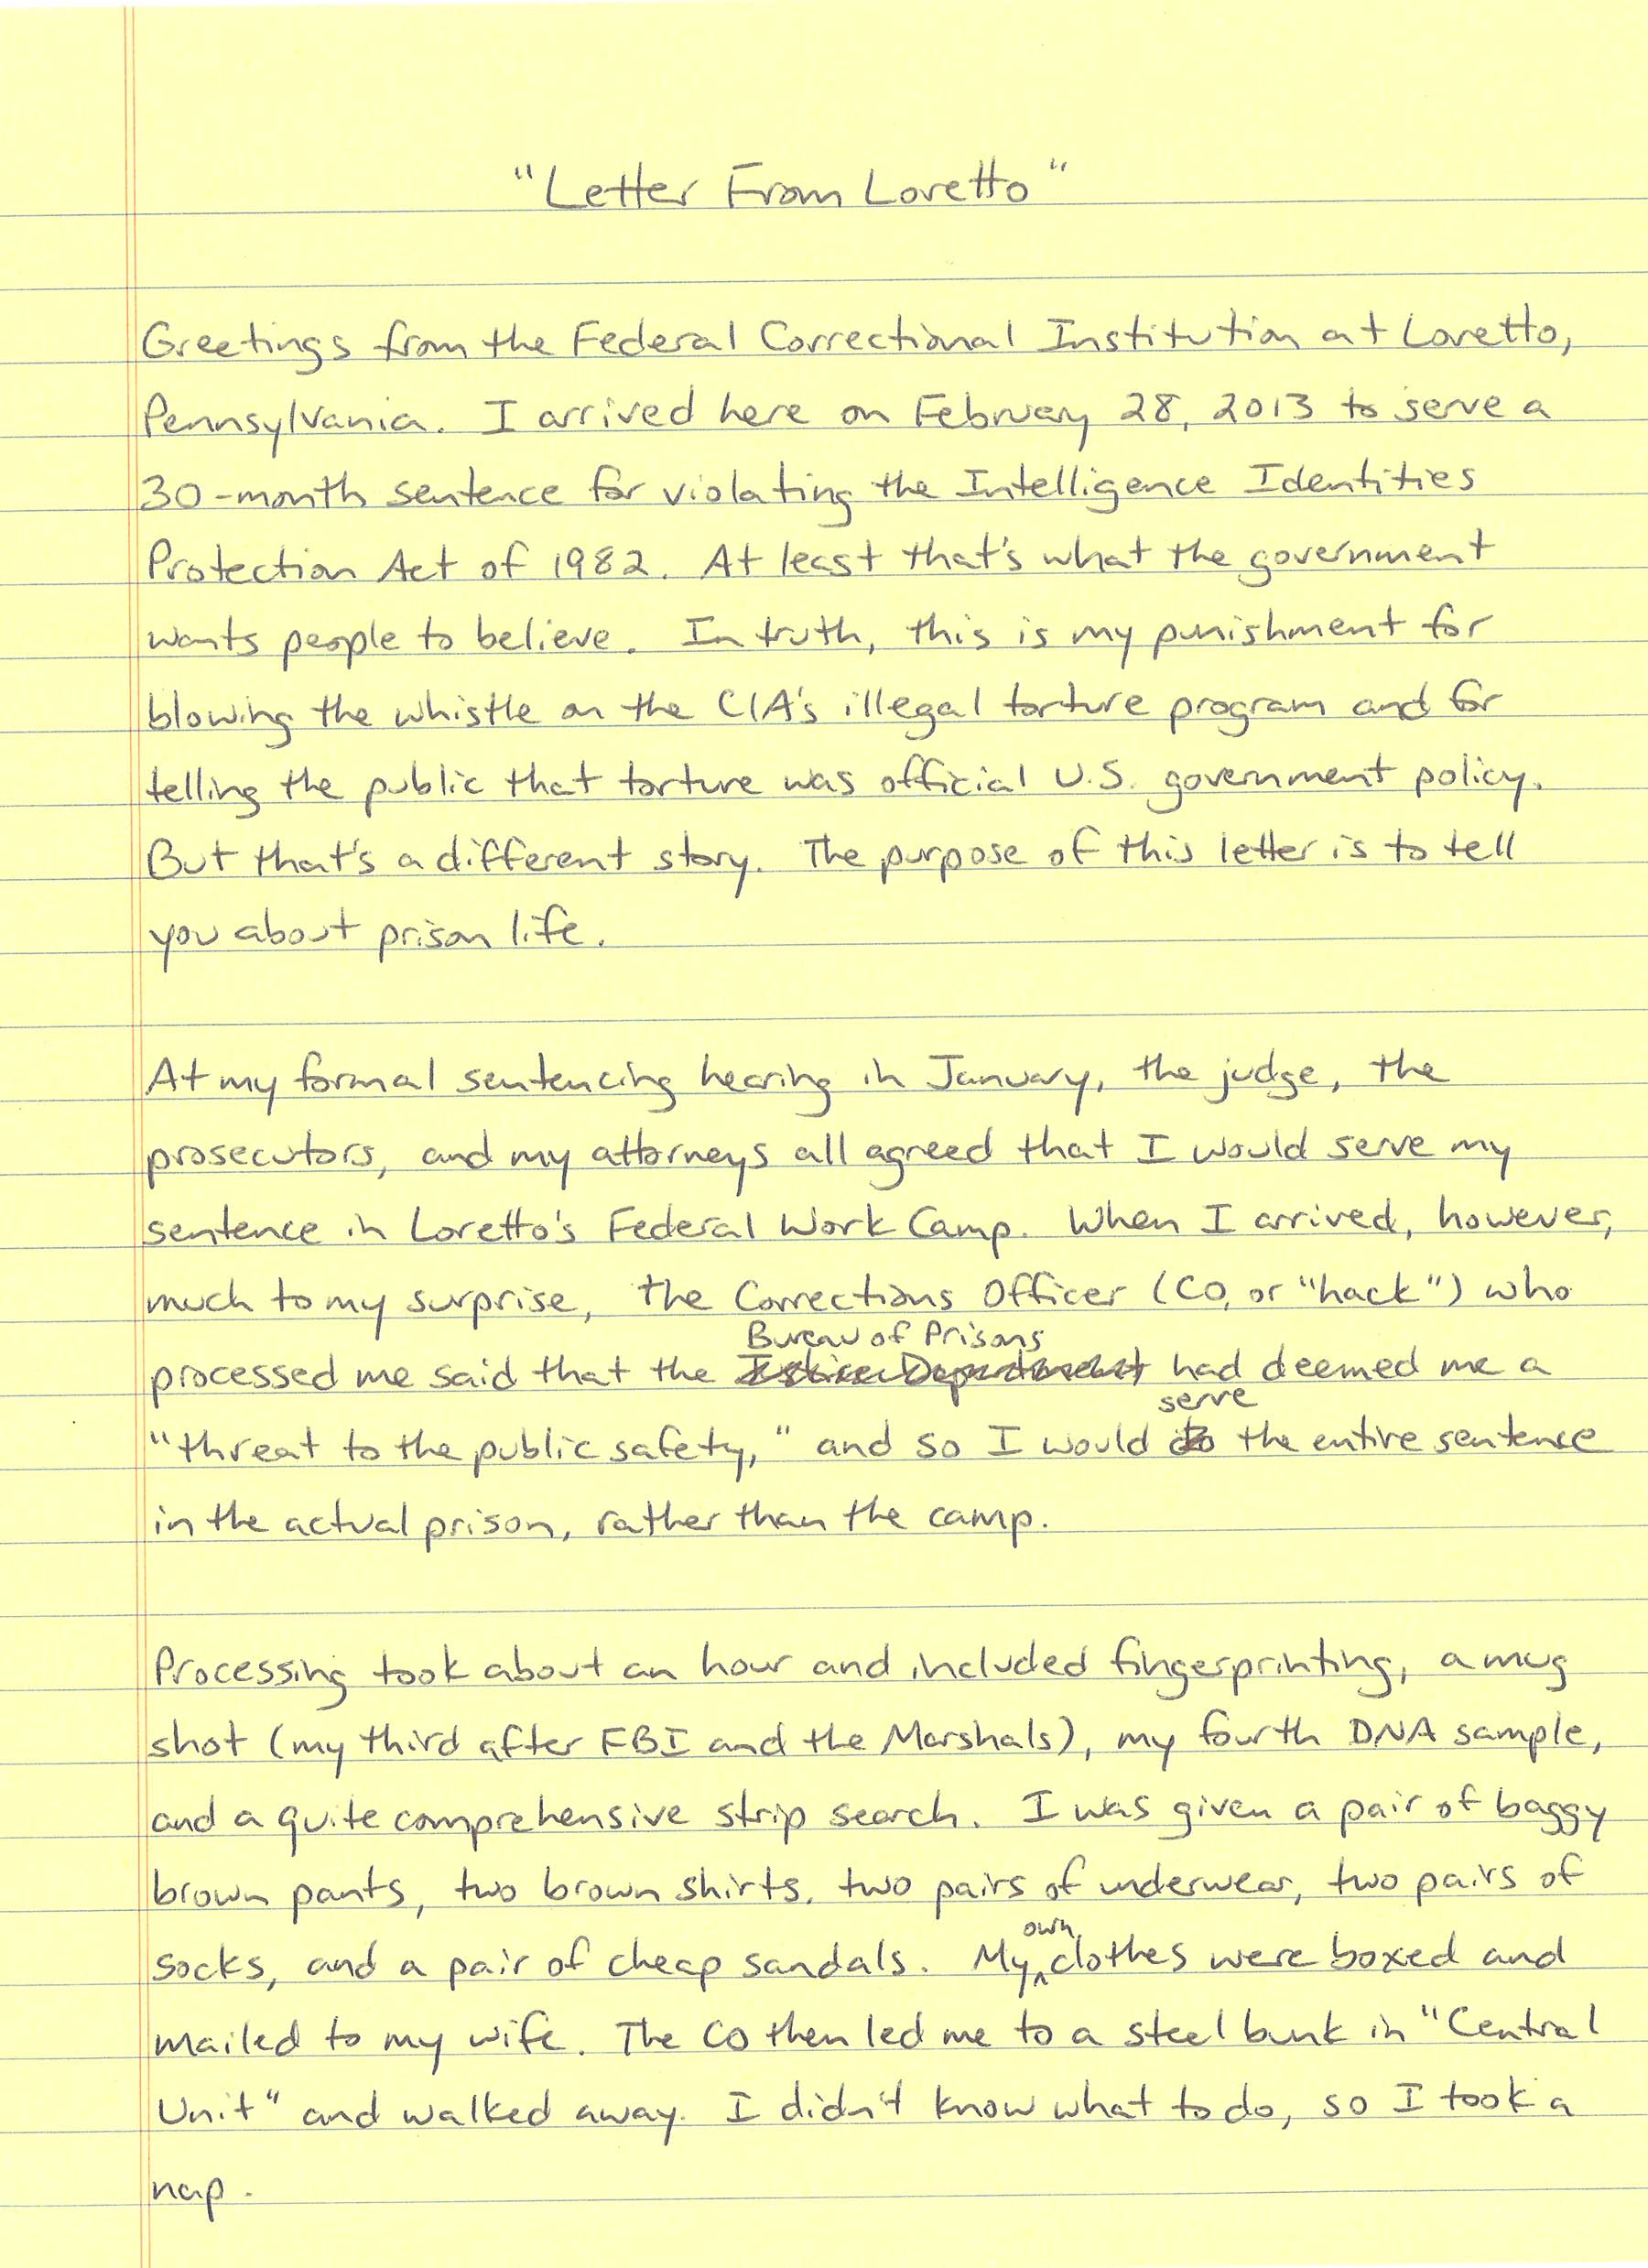 "Letter From Loretto"
Greetings from the Federal Correctional Institution at Loretto,
Pennsylvania. I arrived here on February 28, 2013 to serve a
30-month sentence for violating the Intelligence Identities
Protection Act of 1982. At least that's what the government
wants people to believe. In truth, this is my punishment for
blowing the whistle on the CIA's illegal torture program and for
telling the public that torture was official U.S. government policy.
But that's a different story. The purpose of this letter is to tell
you about prison life.
At my formal sentencing hearing in January, the judge, the
prosecutors, and my attorneys all agreed that I would serve my
sentence in Loretto's Federal Work Camp. When I arrived, however,
much to my surprise, the Corrections Officer (CO, or "hack") who
Bureau of Prisons
processed me said that the Justice Department had deemed me a
serve
"threat to the public safety," and so I would do the entire sentence
in the actual prison, rather than the camp.
Processing took about an hour and included fingerprinting, a mug
shot (my third after FBI and the Marshals), my fourth DNA sample,
and a quite comprehensive strip search. I was given a pair of baggy
brown pants, two brown shirts, two pairs of underwear, two pairs of
own
socks, and a pair of cheap sandals. My clothes were boxed and
mailed to my wife. The CO then led me to a steel bunk in "Central
Unit" and walked away. I didn't know what to do, so I took a
nap.